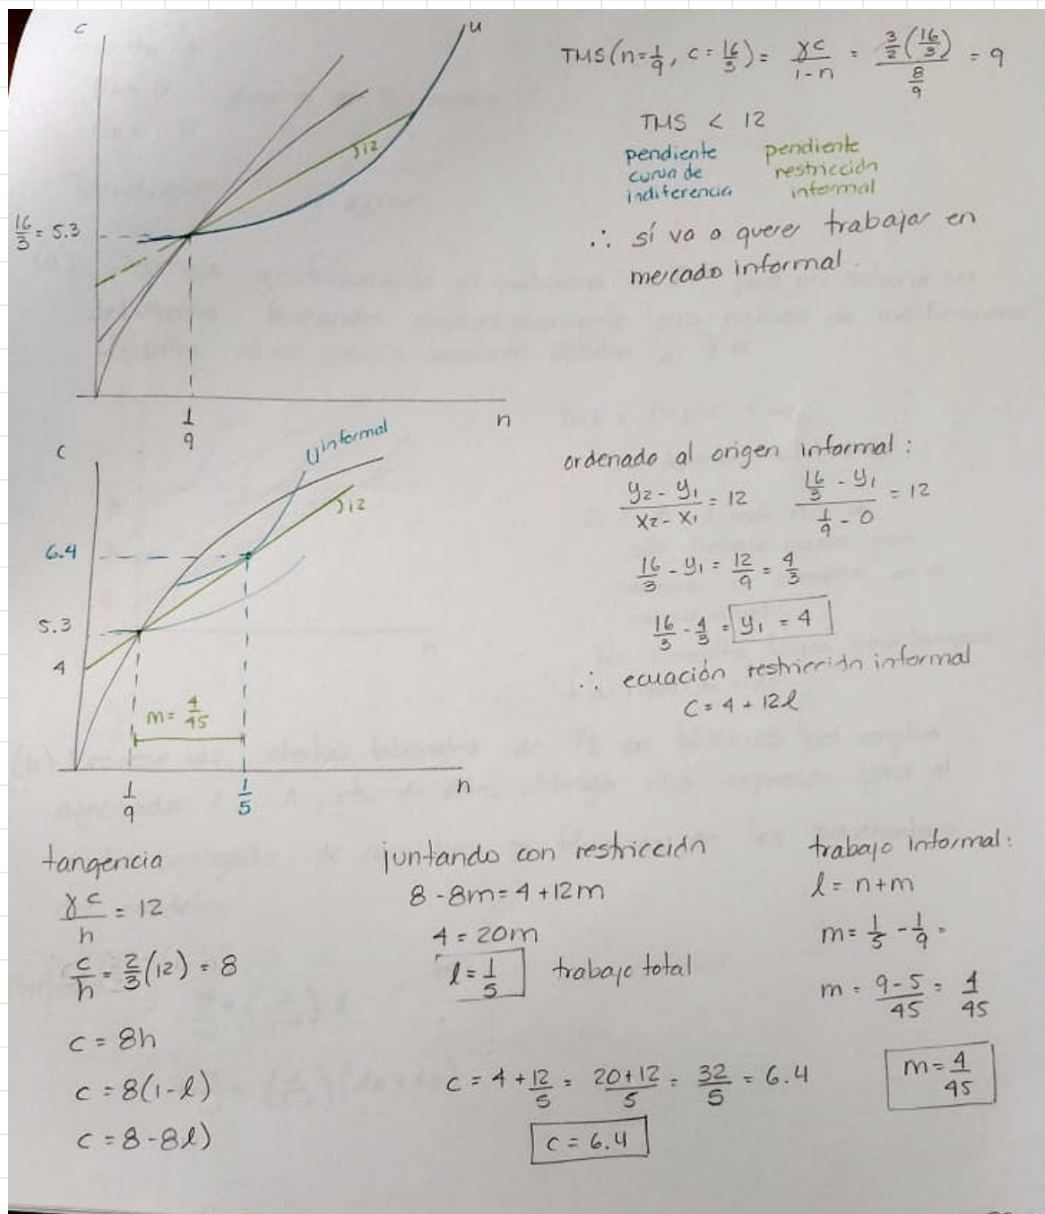 c
u
12
16/3 = 5.3
1/9
n
TMS (n=1/9, c=16/3) = γc/(1-n) = (3/2 (16/3))/(8/9) = 9
TMS < 12
pendiente curva de indiferencia
pendiente restricción informal
∴ sí va a querer trabajar en
mercado informal.
c
U informal
12
6.4
5.3
4
m= 4/45
1/9
1/5
n
ordenada al origen informal:
(y2 - y1)/(x2 - x1) = 12
(16/3 - y1)/(1/9 - 0) = 12
16/3 - y1 = 12/9 = 4/3
16/3 - 4/3 = y1 = 4
∴ ecuación restricción informal
C = 4 + 12l
tangencia
γc/h = 12
c/h = 2/3 (12) = 8
c = 8h
c = 8(1-l)
c = 8-8l)
juntando con restricción
8 - 8m = 4 + 12m
4 = 20m
l = 1/5 trabajo total
c = 4 + 12/5 = (20+12)/5 = 32/5 = 6.4
c = 6.4
trabajo informal:
l = n+m
m = 1/5 - 1/9 =
m = (9-5)/45 = 4/45
m = 4/45